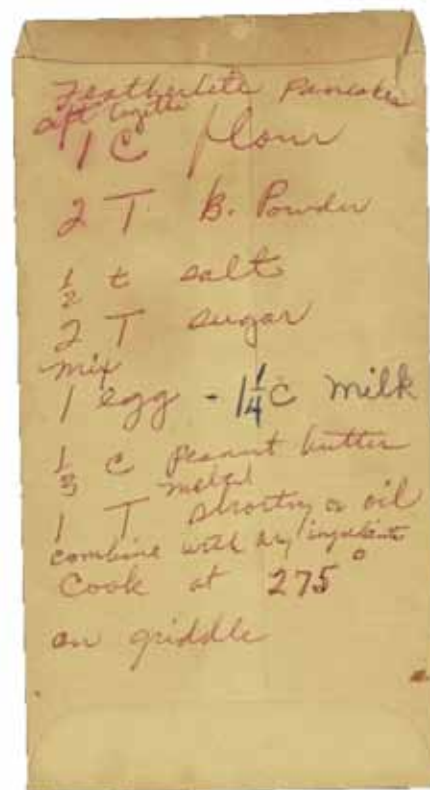 Featherlite Pancakes
sift together
1 C flour
2 T B. Powder
1/2 t salt
2 T sugar
mix
1 egg - 1 1/4 C Milk
1/3 C peanut butter
1 T melted shortng or oil
combine with dry ingredients
Cook at 275°
on griddle